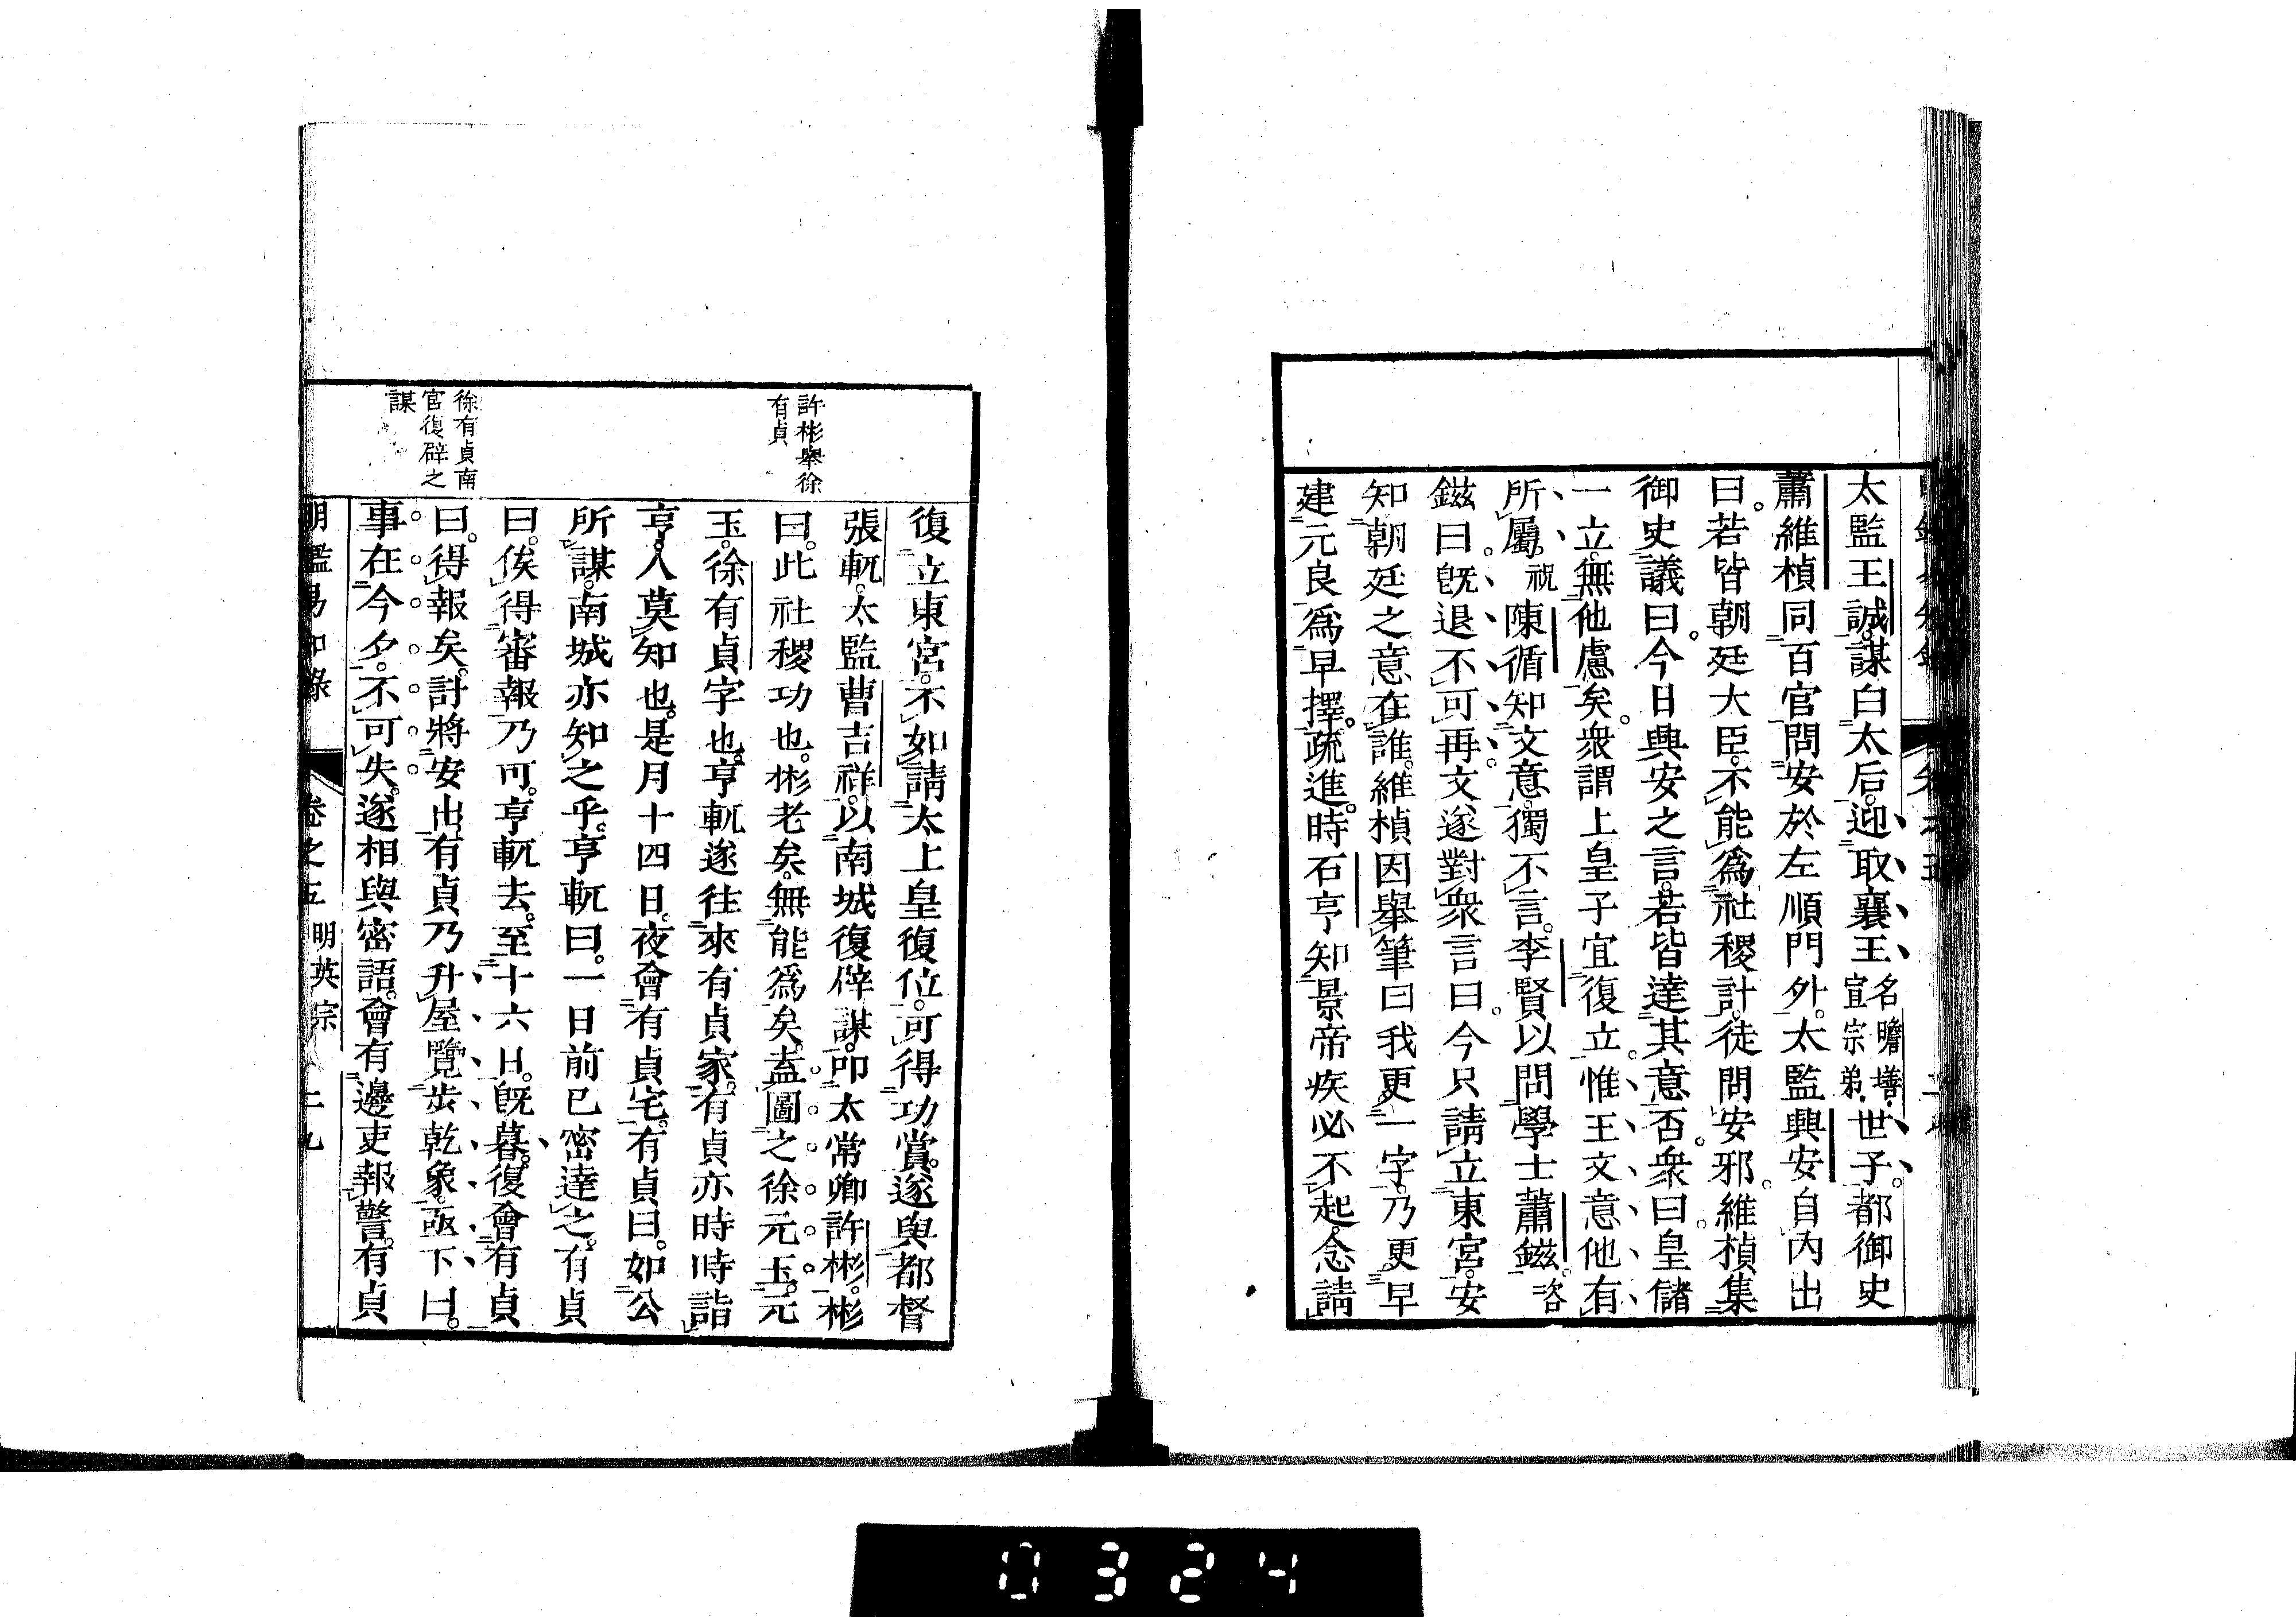 太監王誠。謀白太后。迎取襄王名瞻墡。宣宗弟。世子。都御史
蕭維楨同百官問安於左順門外。太監興安自內出
曰。若皆朝廷大臣。不能爲社稷計。徒問安邪。維楨集
御史議曰。今日興安之言。若皆達其意否。衆曰。皇儲
一立。無他慮矣。衆謂上皇子宜復立。惟王文意他有
所屬。祝陳循知文意。獨不言。李賢以問學士蕭鎡。咨鎡曰。
旣退不可再。文遂對衆言曰。今只請立東宮。安
知朝廷之意在誰。維楨因舉筆曰我更一字。乃更早
建元良爲早擇。疏進。時石亨知景帝疾必不起。念請
許彬舉徐
有貞
徐有貞南
官復辟之
謀
復立東宮。不如請太上皇復位。可得功賞。遂與都督
張軏。太監曹吉祥。以南城復侼謀。叩太常卿許彬。彬
曰。此社稷功也。彬老矣。無能爲矣。盍圖之徐元玉。元
玉。徐有貞字也。亨軏遂往來有貞家。有貞亦時時詣
亨。人莫知也。是月十四日。夜會有貞宅。有貞曰。如公
所謀。南城亦知之乎。亨軏曰。一日前已密達之。有貞
曰。俟得審報乃可。亨軏去。至十六日。旣暮。復會有貞
曰。得報矣。計將安出。有貞乃升屋覽步乾象。亟下曰。
事在今夕。不可失。遂相與密語。會有邊吏報警。有貞
明鑑易知錄 卷之五 明英宗 二九
0324